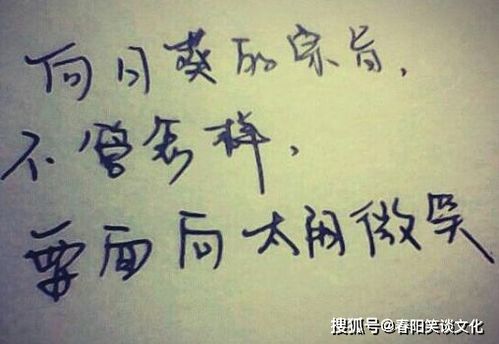 向日葵的宗旨,
不曾怎样,
要面向太阳微笑
搜狐号@春阳笑谈文化